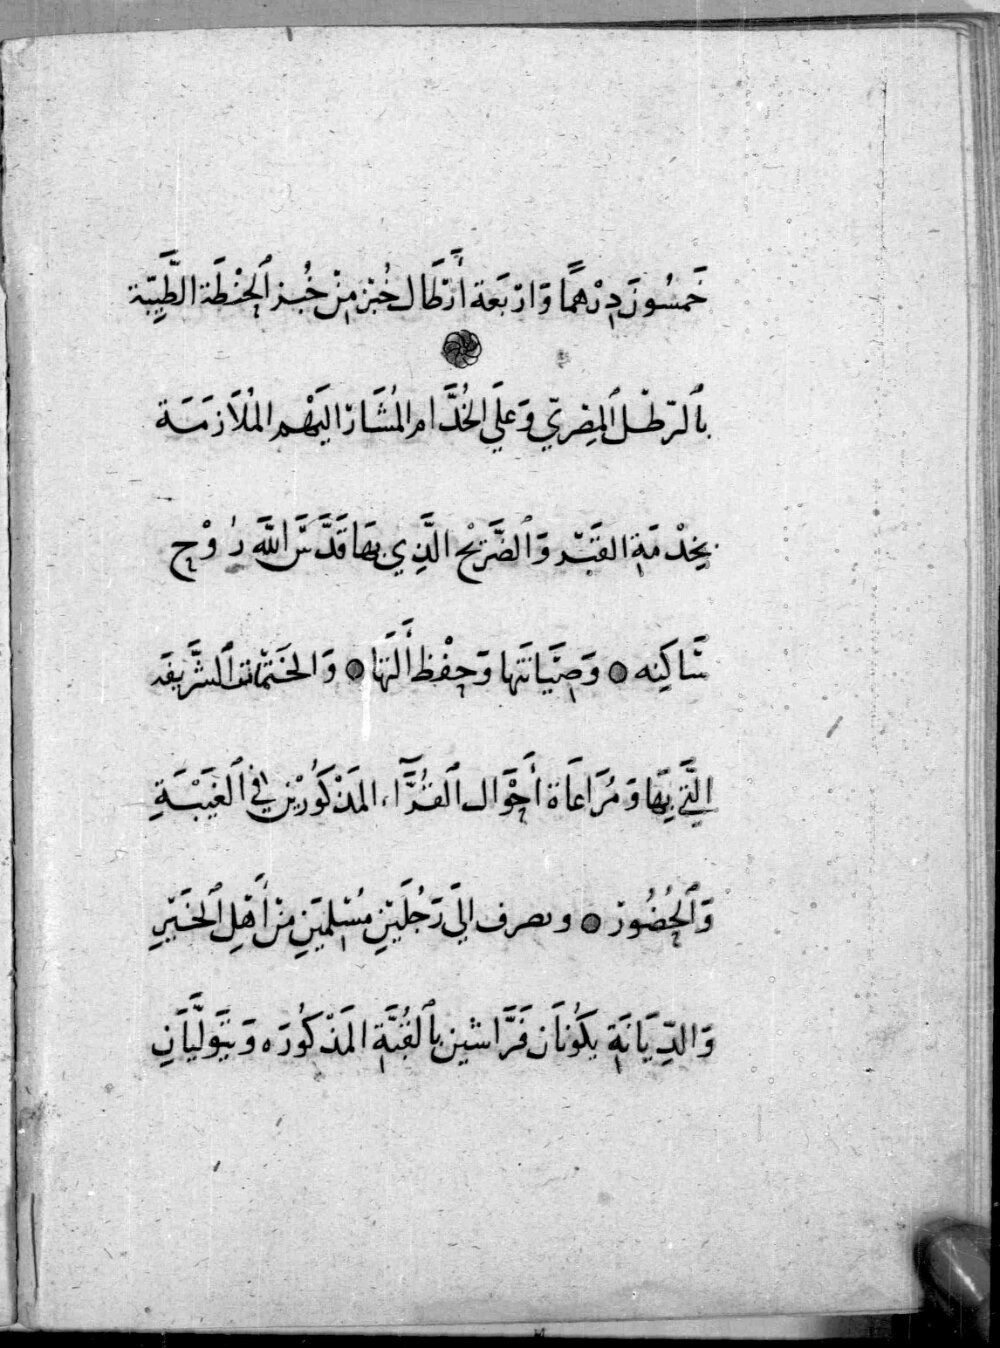 خَمسُونَ دِرْهَمًا وَارْبَعَة أَرْطَال خُبْز مِنْ خُبْز ٱلحِنْطَة الطَّيِّبَة
بِٱلرّطْل ٱلمِصْرِيّ وَعَلَي الخُدَّام المُشَار اليَهْم المُلَازَمَة
بِخِدْمَةِ القَبْر وَٱلضَّرِيْح الَّذِي بهَا قَدَّسَ اللَّه رُوْح
سَاكِنِه ● وَصِيَانَتهَا وَحِفْظ أَلَتهَا ● وَالخَتمَات ٱلشَّرِيفَه
الَّتِي بِهَا وَمُرَاعَاة أَحْوَال ٱلقُرَّآء المَذْكُوُرِيْن فِي ٱلغَيْبَةِ
وَٱلحُضُور ● وىصرف الِيَ رَجُلَيْنِ مُسْلِميَنِ مِنْ أَهْلِ ٱلخَيْرِ
وَالدِّيَانَةِ يَكُونَان فَرَّاشَيْن بِٱلقُبَّةِ المَذْكُورَه وَيَتَوَلَّيَانِ